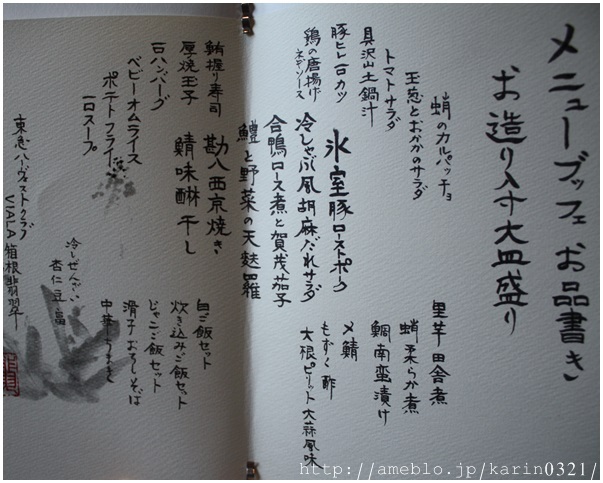 メニューブッフェ お品書き
お造り八寸大皿盛り
蛸のカルパッチョ
玉葱とおかかのサラダ
トマトサラダ
具沢山土鍋汁
豚ヒレ一口カツ
鶏の唐揚げ
ネギソース
里芋田舎煮
蛸柔らか煮
鯛南蛮漬け
〆鯖
もずく酢
大根ピリット大蒜風味
氷室豚ローストポーク
冷しゃぶ風胡麻だれサラダ
合鴨ロース煮と賀茂茄子
鱧と野菜の天麩羅
勘八西京焼き
鯖味醂干し
鮪握り寿司
厚焼玉子
一口ハンバーグ
ベビーオムライス
ポテトフライ
一口スープ
白ご飯セット
炊き込みご飯セット
じゃこご飯セット
滑子おろしそば
冷しぜんざい
杏仁豆腐
東急ハーヴェストクラブ
VIALA箱根翡翠
http://ameblo.jp/karin0321/